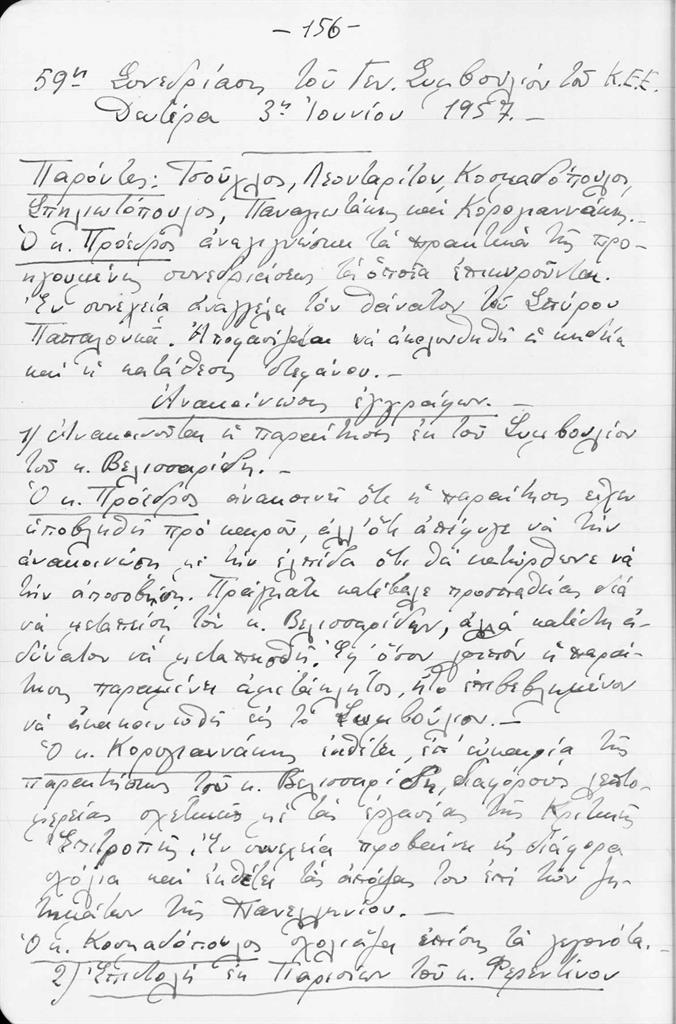 - 156 -
59η Συνεδρίασις τοῦ Γεν. Συμβουλίου τοῦ Κ.Ε.Ε.
Δευτέρα 3η Ἰουνίου 1957. -
Παρόντες: Τσοῦχλος, Λεονταρίτου, Κοσμαδόπουλος,
Σπηλιωτόπουλος, Παναγιωτάκης καί Κορογιαννάκης. -
Ὁ κ. Πρόεδρος ἀναγιγνώσκει τά πρακτικά τῆς προ-
ηγουμένης συνεδριάσεως τά ὁποῖα ἐπικυροῦνται.
Ἐν συνεχείᾳ ἀναγγέλει τόν θάνατον τοῦ Σπύρου
Παπαλουκᾶ. Ἀποφασίζεται νά ἀκολουθηθῇ ἡ κηδεία
καί ἡ κατάθεσις στεφάνου. -
Ἀνακοίνωσις ἐγγράφων. -
1) Ἀνακοινοῦται ἡ παραίτησις ἐκ τοῦ Συμβουλίου
τοῦ κ. Βελισσαρίδη. -
Ὁ κ. Πρόεδρος ἀνακοινεῖ ὅτι ἡ παραίτησις εἶχεν
ὑποβληθῆ πρό καιροῦ, ἀλλ' ὅτι ἀπέφυγε νά τήν
ἀνακοινώσῃ μέ τήν ἐλπίδα ὅτι θά κατώρθωνε νά
τήν ἀποσοβήσῃ. Πράγματι κατέβαλε προσπαθείας διά
νά μεταπείσῃ τόν κ. Βελισσαρίδην, ἀλλά κατέστη ἀ-
δύνατον νά μεταπεισθῇ. Ἐφ' ὅσον λοιπόν ἡ παραί-
τησις παραμένει ἀμετάκλητος, ἦτο ἐπιβεβλημένον
νά ἀνακοινωθῇ εἰς τό Συμβούλιον. -
Ὁ κ. Κορογιαννάκης ἐκθέτει, ἐπ' εὐκαιρίᾳ τῆς
παραιτήσεως τοῦ κ. Βελισσαρίδη, διαφόρους λεπτο-
μερείας σχετικάς μέ τάς ἐργασίας τῆς Κριτικῆς
Ἐπιτροπῆς. Ἐν συνεχείᾳ προβαίνει εἰς διάφορα
σχόλια καί ἐκθέτει τάς ἀπόψεις του ἐπί τῶν ζη-
τημάτων τῆς Πανελληνίου. -
Ὁ κ. Κοσμαδόπουλος σχολιάζει ἐπίσης τά γεγονότα. -
2) Ἐπιστολή ἐκ Παρισίων τοῦ κ. Φερεντίνου